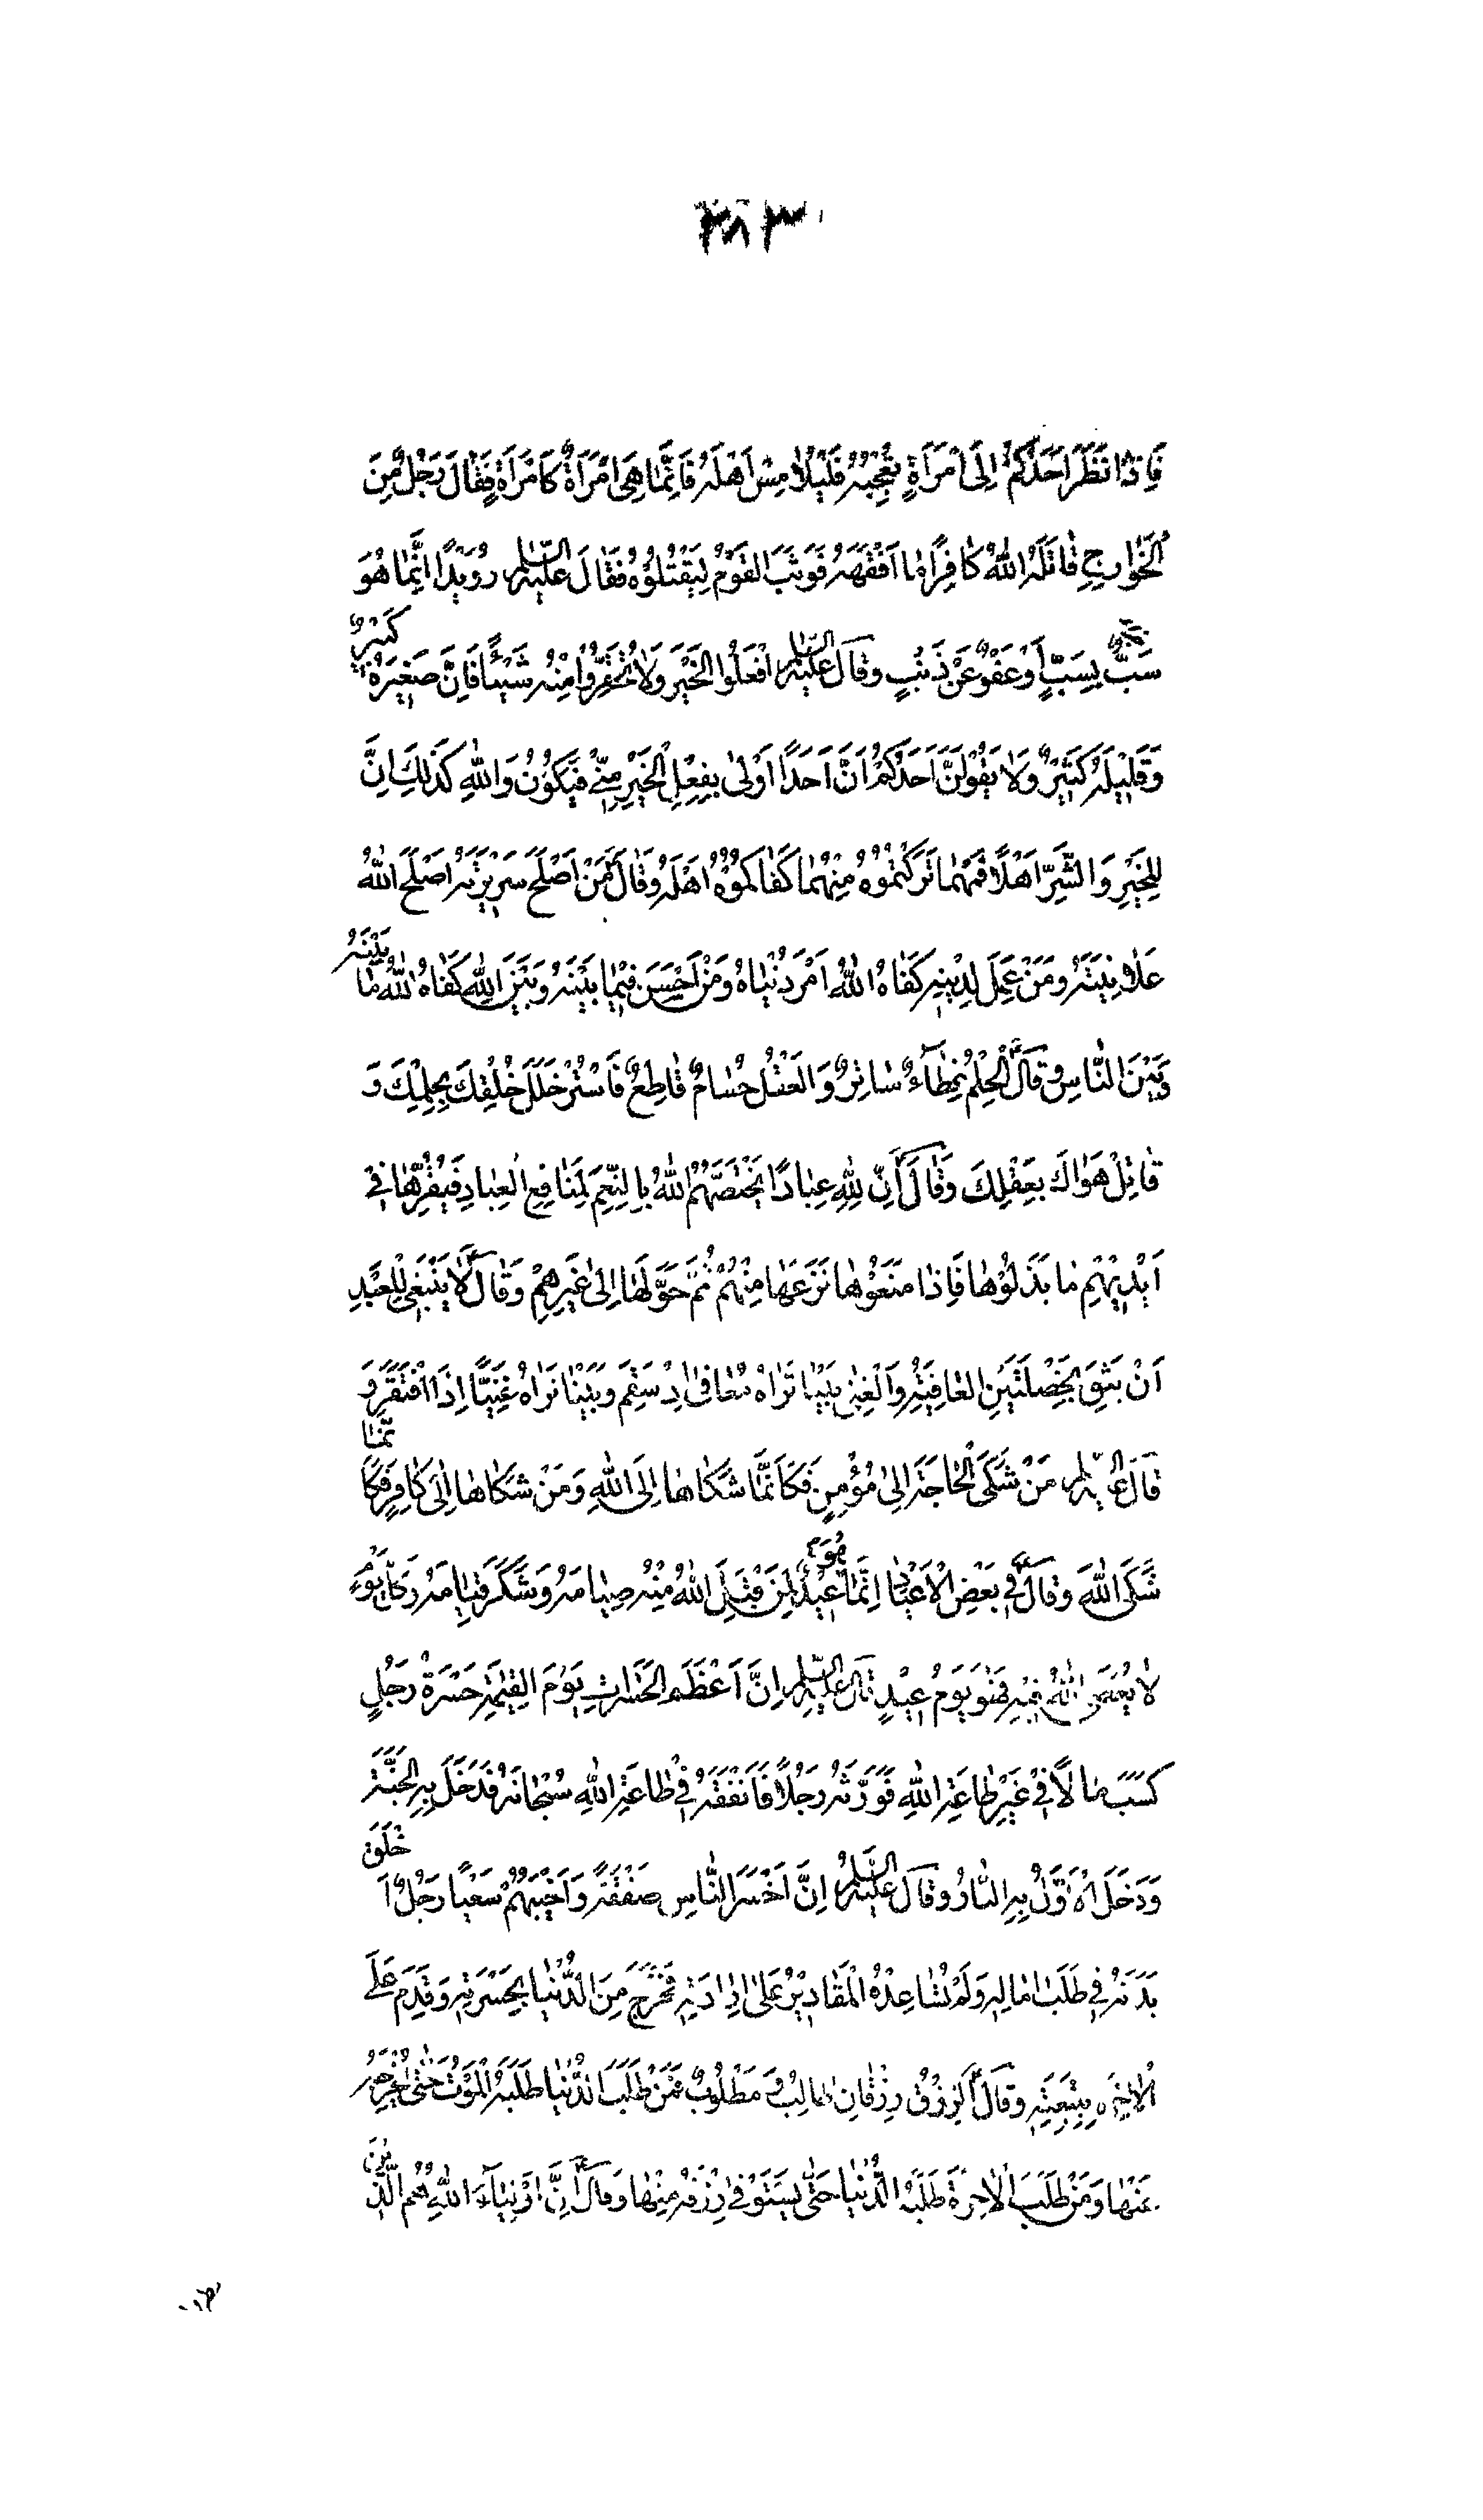 ٣٨٣
فَاِذٰا نَظَرَ اَحَدُكُمْ اِلَى امْرَأَةٍ تُعْجِبُهُ فَلْيُلٰامِسْ اَهْلَهُ فَاِنَّمٰا هِىَ امْرَأَةٌ كَامْرَأَةٍ فَقٰالَ رَجُلٌ مِنَ
الْخَوٰارِجِ قٰاتَلَهُ اللهُ كٰافِرًا مٰا اَفْقَهَهُ فَوَثَبَ الْقَوْمُ لِيَقْتُلُوْهُ فَقٰالَ عَلَيْهِ السَّلٰامُ رُوَيْدًا اِنَّمٰا هُوَ
سَبٌّ بِسَبٍّ اَوْ عَفْوٌ عَنْ ذَنْبٍ وَقٰالَ عَلَيْهِ السَّلٰامُ افْعَلُوا الْخَيْرَ وَلٰا تُحَقِّرُوْا مِنْهُ شَيْئًا فَاِنَّ صَغِيْرَهُ كَبِيْرٌ
وَقَلِيْلَهُ كَثِيْرٌ وَلٰا يَقُوْلَنَّ اَحَدُكُمْ اَنَّ اَحَدًا اَوْلٰى بِفِعْلِ الْخَيْرِ مِنِّيْ فَيَكُوْنُ وَاللهِ كَذٰلِكَ اِنَّ
لِلْخَيْرِ وَالشَّرِّ اَهْلًا فَمَهْمٰا تَرَكْتُمُوْهُ مِنْهُمٰا كَفٰاكُمُوْهُ اَهْلُهُ وَقٰالَ مَنْ اَصْلَحَ سَرِيْرَتَهُ اَصْلَحَ اللهُ
عَلٰانِيَتَهُ وَمَنْ عَمِلَ لِدِيْنِهِ كَفٰاهُ اللهُ اَمْرَ دُنْيٰاهُ وَمَنْ اَحْسَنَ فِيْمٰا بَيْنَهُ وَبَيْنَ اللهِ كَفٰاهُ اللهُ مٰا بَيْنَهُ
وَبَيْنَ النّٰاسِ وَقٰالَ الْحِلْمُ غِطٰآءٌ سٰاتِرٌ وَالْعَقْلُ حُسٰامٌ قٰاطِعٌ فَاسْتُرْ خَلَلَ خُلُقِكَ بِحِلْمِكَ وَ
قٰاتِلْ هَوٰاكَ بِعَقْلِكَ وَقٰالَ اِنَّ لِلّٰهِ عِبٰادًا يَخْتَصُّهُمُ اللهُ بِالنِّعَمِ لِمَنٰافِعِ الْعِبٰادِ فَيُقِرُّهٰا فِيْ
اَيْدِيْهِمْ مٰا بَذَلُوْهٰا فَاِذٰا مَنَعُوْهٰا نَزَعَهٰا مِنْهُمْ ثُمَّ حَوَّلَهٰا اِلٰى غَيْرِهِمْ وَقٰالَ لٰا يَنْبَغِىْ لِلْعَبْدِ
اَنْ يَثِقَ بِخَصْلَتَيْنِ الْعٰافِيَةِ وَالْغِنٰى بَيْنٰا تَرٰاهُ مُعٰافًى اِذْ سَقِمَ وَبَيْنٰا تَرٰاهُ غَنِيًّا اِذَا افْتَقَرَ وَ
قٰالَ عَلَيْهِ السَّلٰامُ مَنْ شَكَى الْحٰاجَةَ اِلٰى مُؤْمِنٍ فَكَاَنَّمٰا شَكٰاهٰا اِلَى اللهِ وَمَنْ شَكٰاهٰا اِلٰى كٰافِرٍ فَكَاَنَّمٰا
شَكَى اللهَ وَقٰالَ فِيْ بَعْضِ الْاَعْيٰادِ اِنَّمٰا هُوَ عِيْدٌ لِمَنْ قَبِلَ اللهُ مِنْهُ صِيٰامَهُ وَشَكَرَ قِيٰامَهُ وَكُلُّ يَوْمٍ
لٰا يُعْصَى اللهُ فِيْهِ فَهُوَ يَوْمُ عِيْدٍ قٰالَ عَلَيْهِ السَّلٰامُ اِنَّ اَعْظَمَ الْحَسَرٰاتِ يَوْمَ الْقِيٰمَةِ حَسْرَةُ رَجُلٍ
كَسَبَ مٰالًا فِيْ غَيْرِ طٰاعَةِ اللهِ فَوَرَّثَهُ رَجُلًا فَاَنْفَقَهُ فِيْ طٰاعَةِ اللهِ سُبْحٰانَهُ فَدَخَلَ بِهِ الْجَنَّةَ
وَدَخَلَ الْاَوَّلُ بِهِ النّٰارَ وَقٰالَ عَلَيْهِ السَّلٰامُ اِنَّ اَخْسَرَ النّٰاسِ صَفْقَةً وَاَخْيَبَهُمْ سَعْيًا رَجُلٌ اَخْلَقَ
بَدَنَهُ فِيْ طَلَبِ اٰمٰالِهِ وَلَمْ تُسٰاعِدْهُ الْمَقٰادِيْرُ عَلٰى اِرٰادَتِهِ فَخَرَجَ مِنَ الدُّنْيٰا بِحَسْرَتِهِ وَقَدِمَ عَلَى
الْاٰخِرَةِ بِتَبِعَتِهِ وَقٰالَ الرِّزْقُ رِزْقٰانِ طٰالِبٌ وَمَطْلُوْبٌ فَمَنْ طَلَبَ الدُّنْيٰا طَلَبَهُ الْمَوْتُ حَتّٰى يُخْرِجَهُ
عَنْهٰا وَمَنْ طَلَبَ الْاٰخِرَةَ طَلَبَتْهُ الدُّنْيٰا حَتّٰى يَسْتَوْفِيَ رِزْقَهُ مِنْهٰا وَقٰالَ اِنَّ اَوْلِيٰآءَ اللهِ هُمُ الَّذِيْنَ